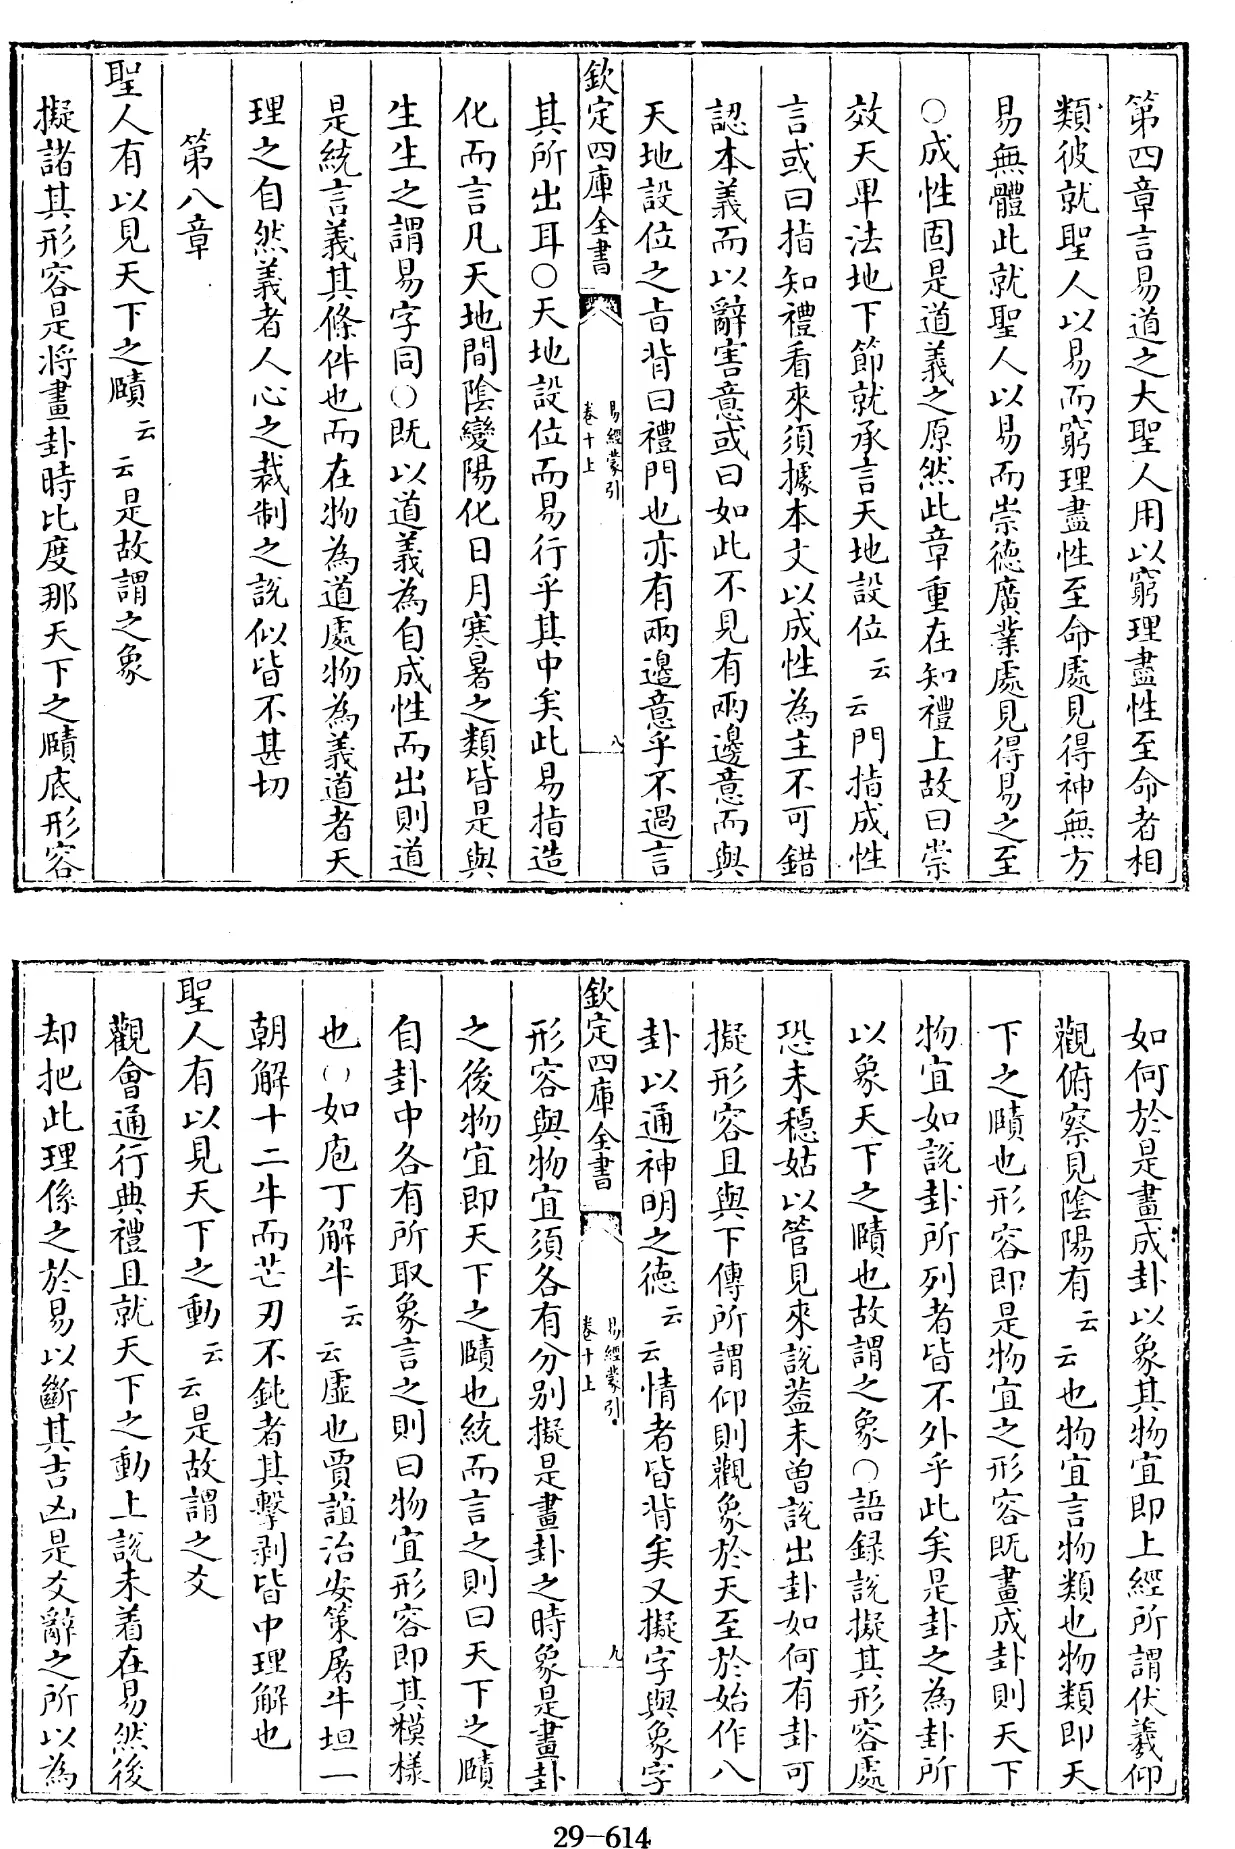 第四章言易道之大聖人用以窮理盡性至命者相
類彼就聖人以易而窮理盡性至命處見得神無方
易無體此就聖人以易而崇德廣業處見得易之至
○成性固是道義之原然此章重在知禮上故曰崇
效天卑法地下節就承言天地設位云云門指成性
言或曰指知禮看來須據本文以成性為主不可錯
認本義而以辭害意或曰如此不見有兩邊意而與
天地設位之旨背曰禮門也亦有兩邊意乎不過言
欽定四庫全書
易經蒙引
卷十上
八
其所出耳○天地設位而易行乎其中矣此易指造
化而言凡天地間陰變陽化日月寒暑之類皆是與
生生之謂易字同○既以道義為自成性而出則道
是統言義其條件也而在物為道處物為義道者天
理之自然義者人心之裁制之說似皆不甚切
第八章
聖人有以見天下之賾云云是故謂之象
擬諸其形容是將畫卦時比度那天下之賾底形容
如何於是畫成卦以象其物宜即上經所謂伏羲仰
觀俯察見陰陽有云云也物宜言物類也物類即天
下之賾也形容即是物宜之形容既畫成卦則天下
物宜如說卦所列者皆不外乎此矣是卦之為卦所
以象天下之賾也故謂之象○語錄說擬其形容處
恐未穩姑以管見來說蓋未曾說出卦如何有卦可
擬形容且與下傳所謂仰則觀象於天至於始作八
卦以通神明之德云云情者皆背矣又擬字與象字
欽定四庫全書
易經蒙引
卷十上
九
形容與物宜須各有分別擬是畫卦之時象是畫卦
之後物宜即天下之賾也統而言之則曰天下之賾
自卦中各有所取象言之則曰物宜形容即其模樣
也○如庖丁解牛云云虛也賈誼治安策屠牛坦一
朝解十二牛而芒刃不鈍者其擊剥皆中理解也
聖人有以見天下之動云云是故謂之爻
觀會通行典禮且就天下之動上說未着在易然後
却把此理係之於易以斷其吉凶是爻辭之所以為
29-614